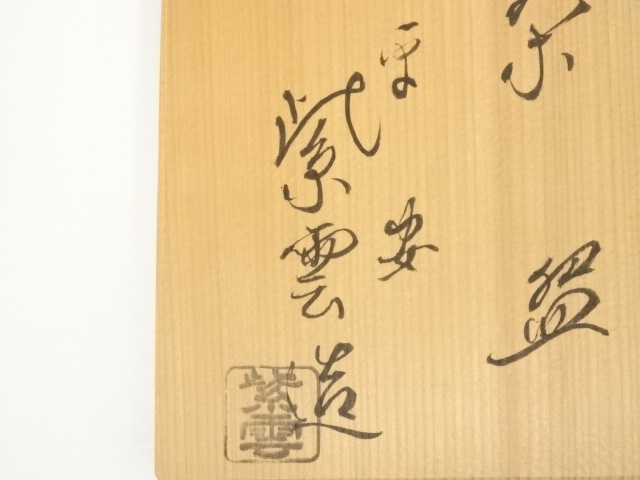 盌
平安
紫雲造
紫雲